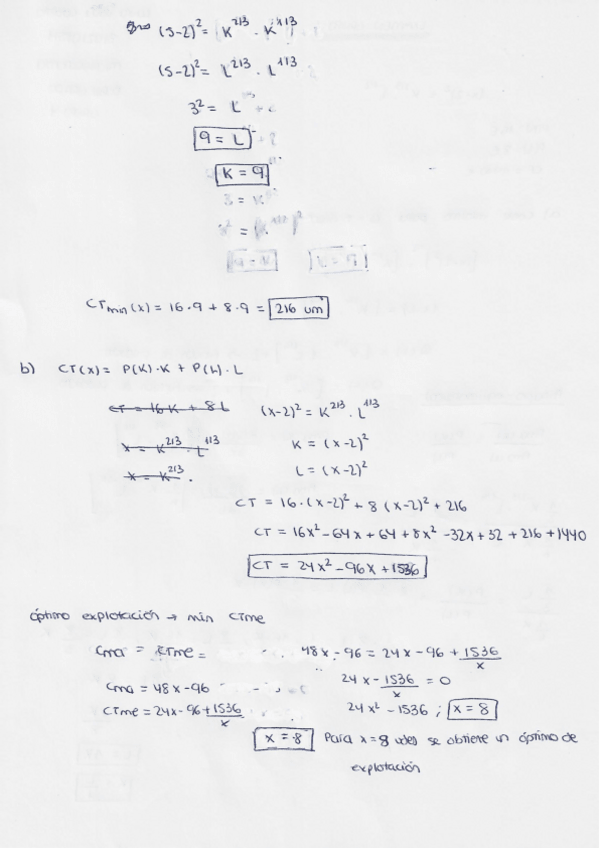 (5-2)² = K^2/3 · K^1/3
(5-2)² = L^2/3 · L^1/3
3² = L
9 = L
K = 9
3 = K
CTmin(x) = 16·9 + 8·9 = 216 um
b) CT(x) = P(K)·K + P(L)·L
CT = 16K + 8L (x-2)² = K^2/3 · L^1/3
x = K^2/3 · L^1/3 K = (x-2)²
x = K^2/3. L = (x-2)²
CT = 16·(x-2)² + 8(x-2)² + 216
CT = 16x² - 64x + 64 + 8x² - 32x + 32 + 216 + 1440
CT = 24x² - 96x + 1536
óptimo explotación → min CTme
Cma = CTme = 48x - 96 = 24x - 96 + 1536/x
24x - 1536/x = 0
Cma = 48x - 96
CTme = 24x - 96 + 1536/x 24x² - 1536 ; x = 8
x = 8 Para x = 8 udes se obtiene un óptimo de
explotación